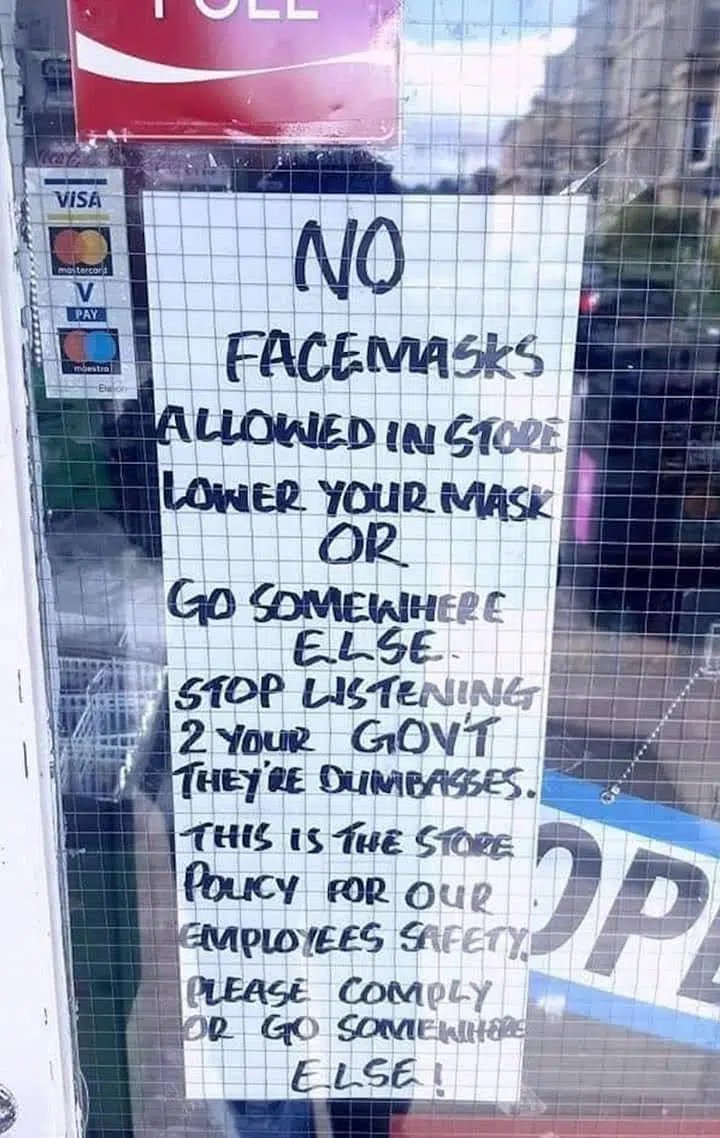 PULL
VISA
mastercard
V
PAY
maestro
NO
FACEMASKS
ALLOWED IN STORE
LOWER YOUR MASK
OR
GO SOMEWHERE
ELSE.
STOP LISTENING
2 YOUR GOV'T
THEY'RE DUMBASSES.
THIS IS THE STORE
POLICY FOR OUR
EMPLOYEES SAFETY.
PLEASE COMPLY
OR GO SOMEWHERE
ELSE!
OPE